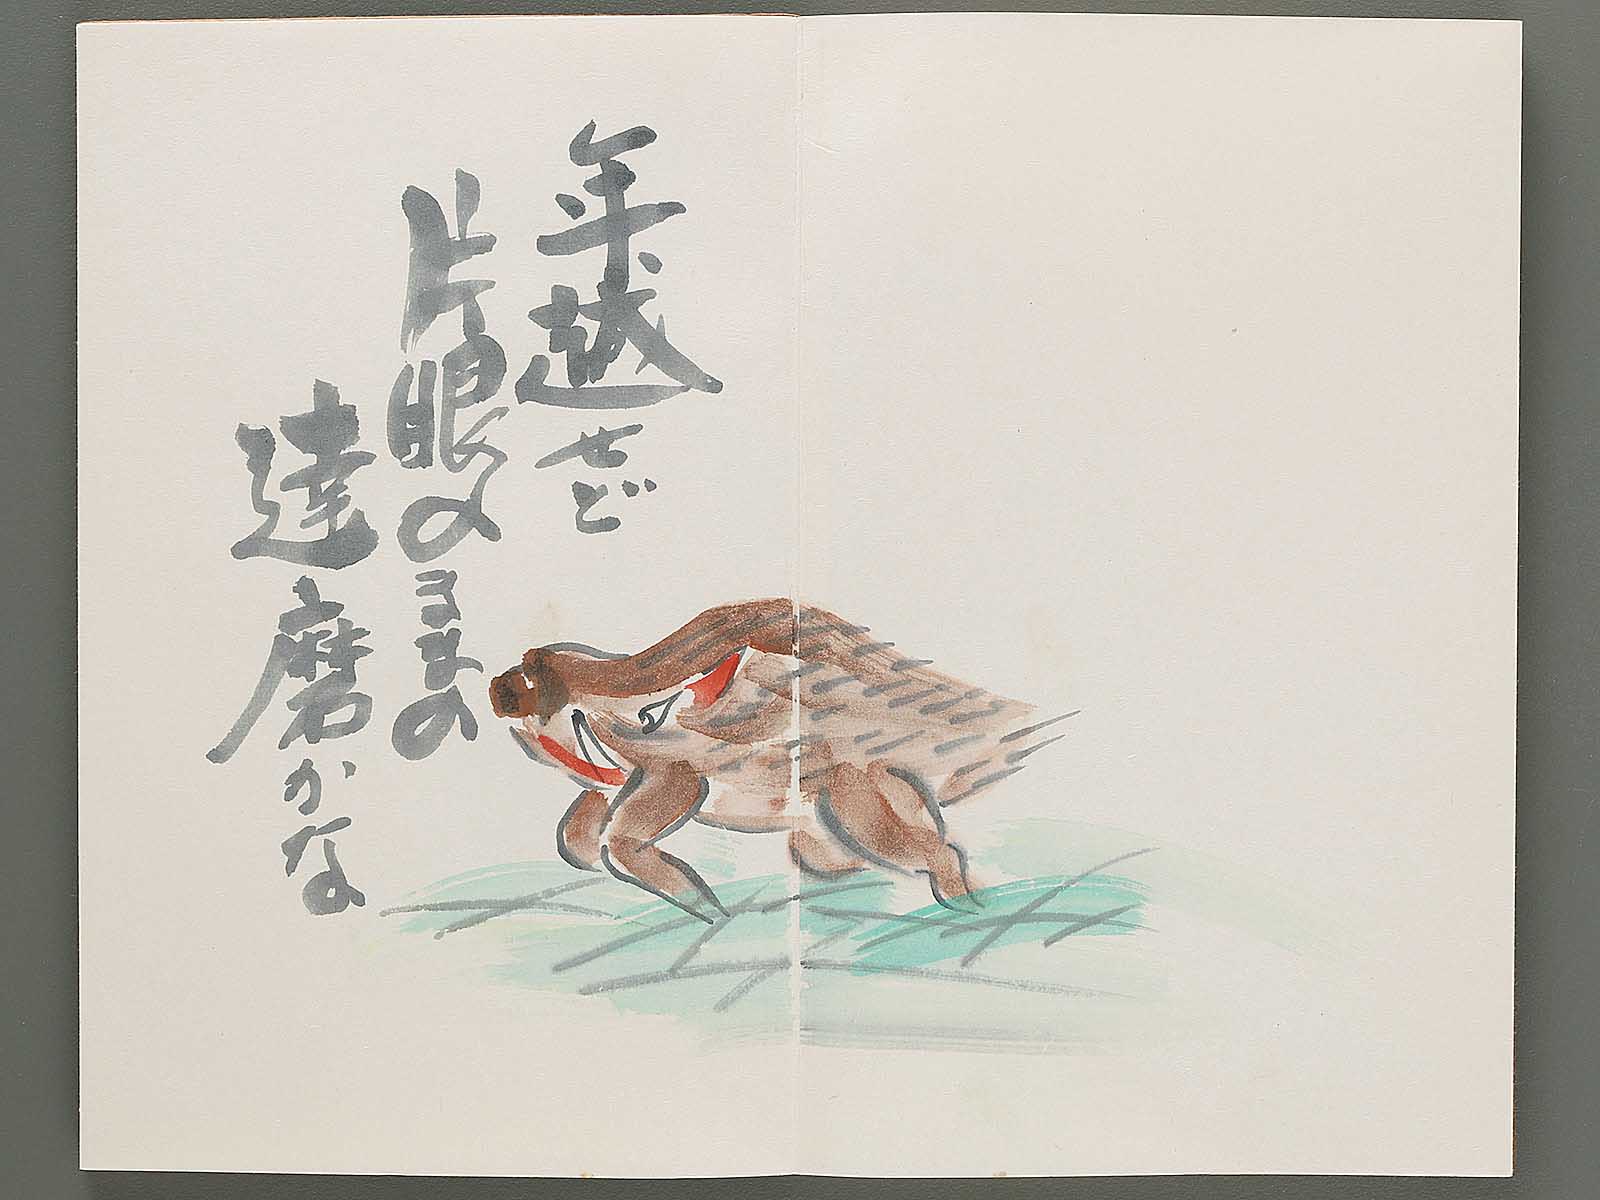 年越せど
片眼のままの
達磨かな